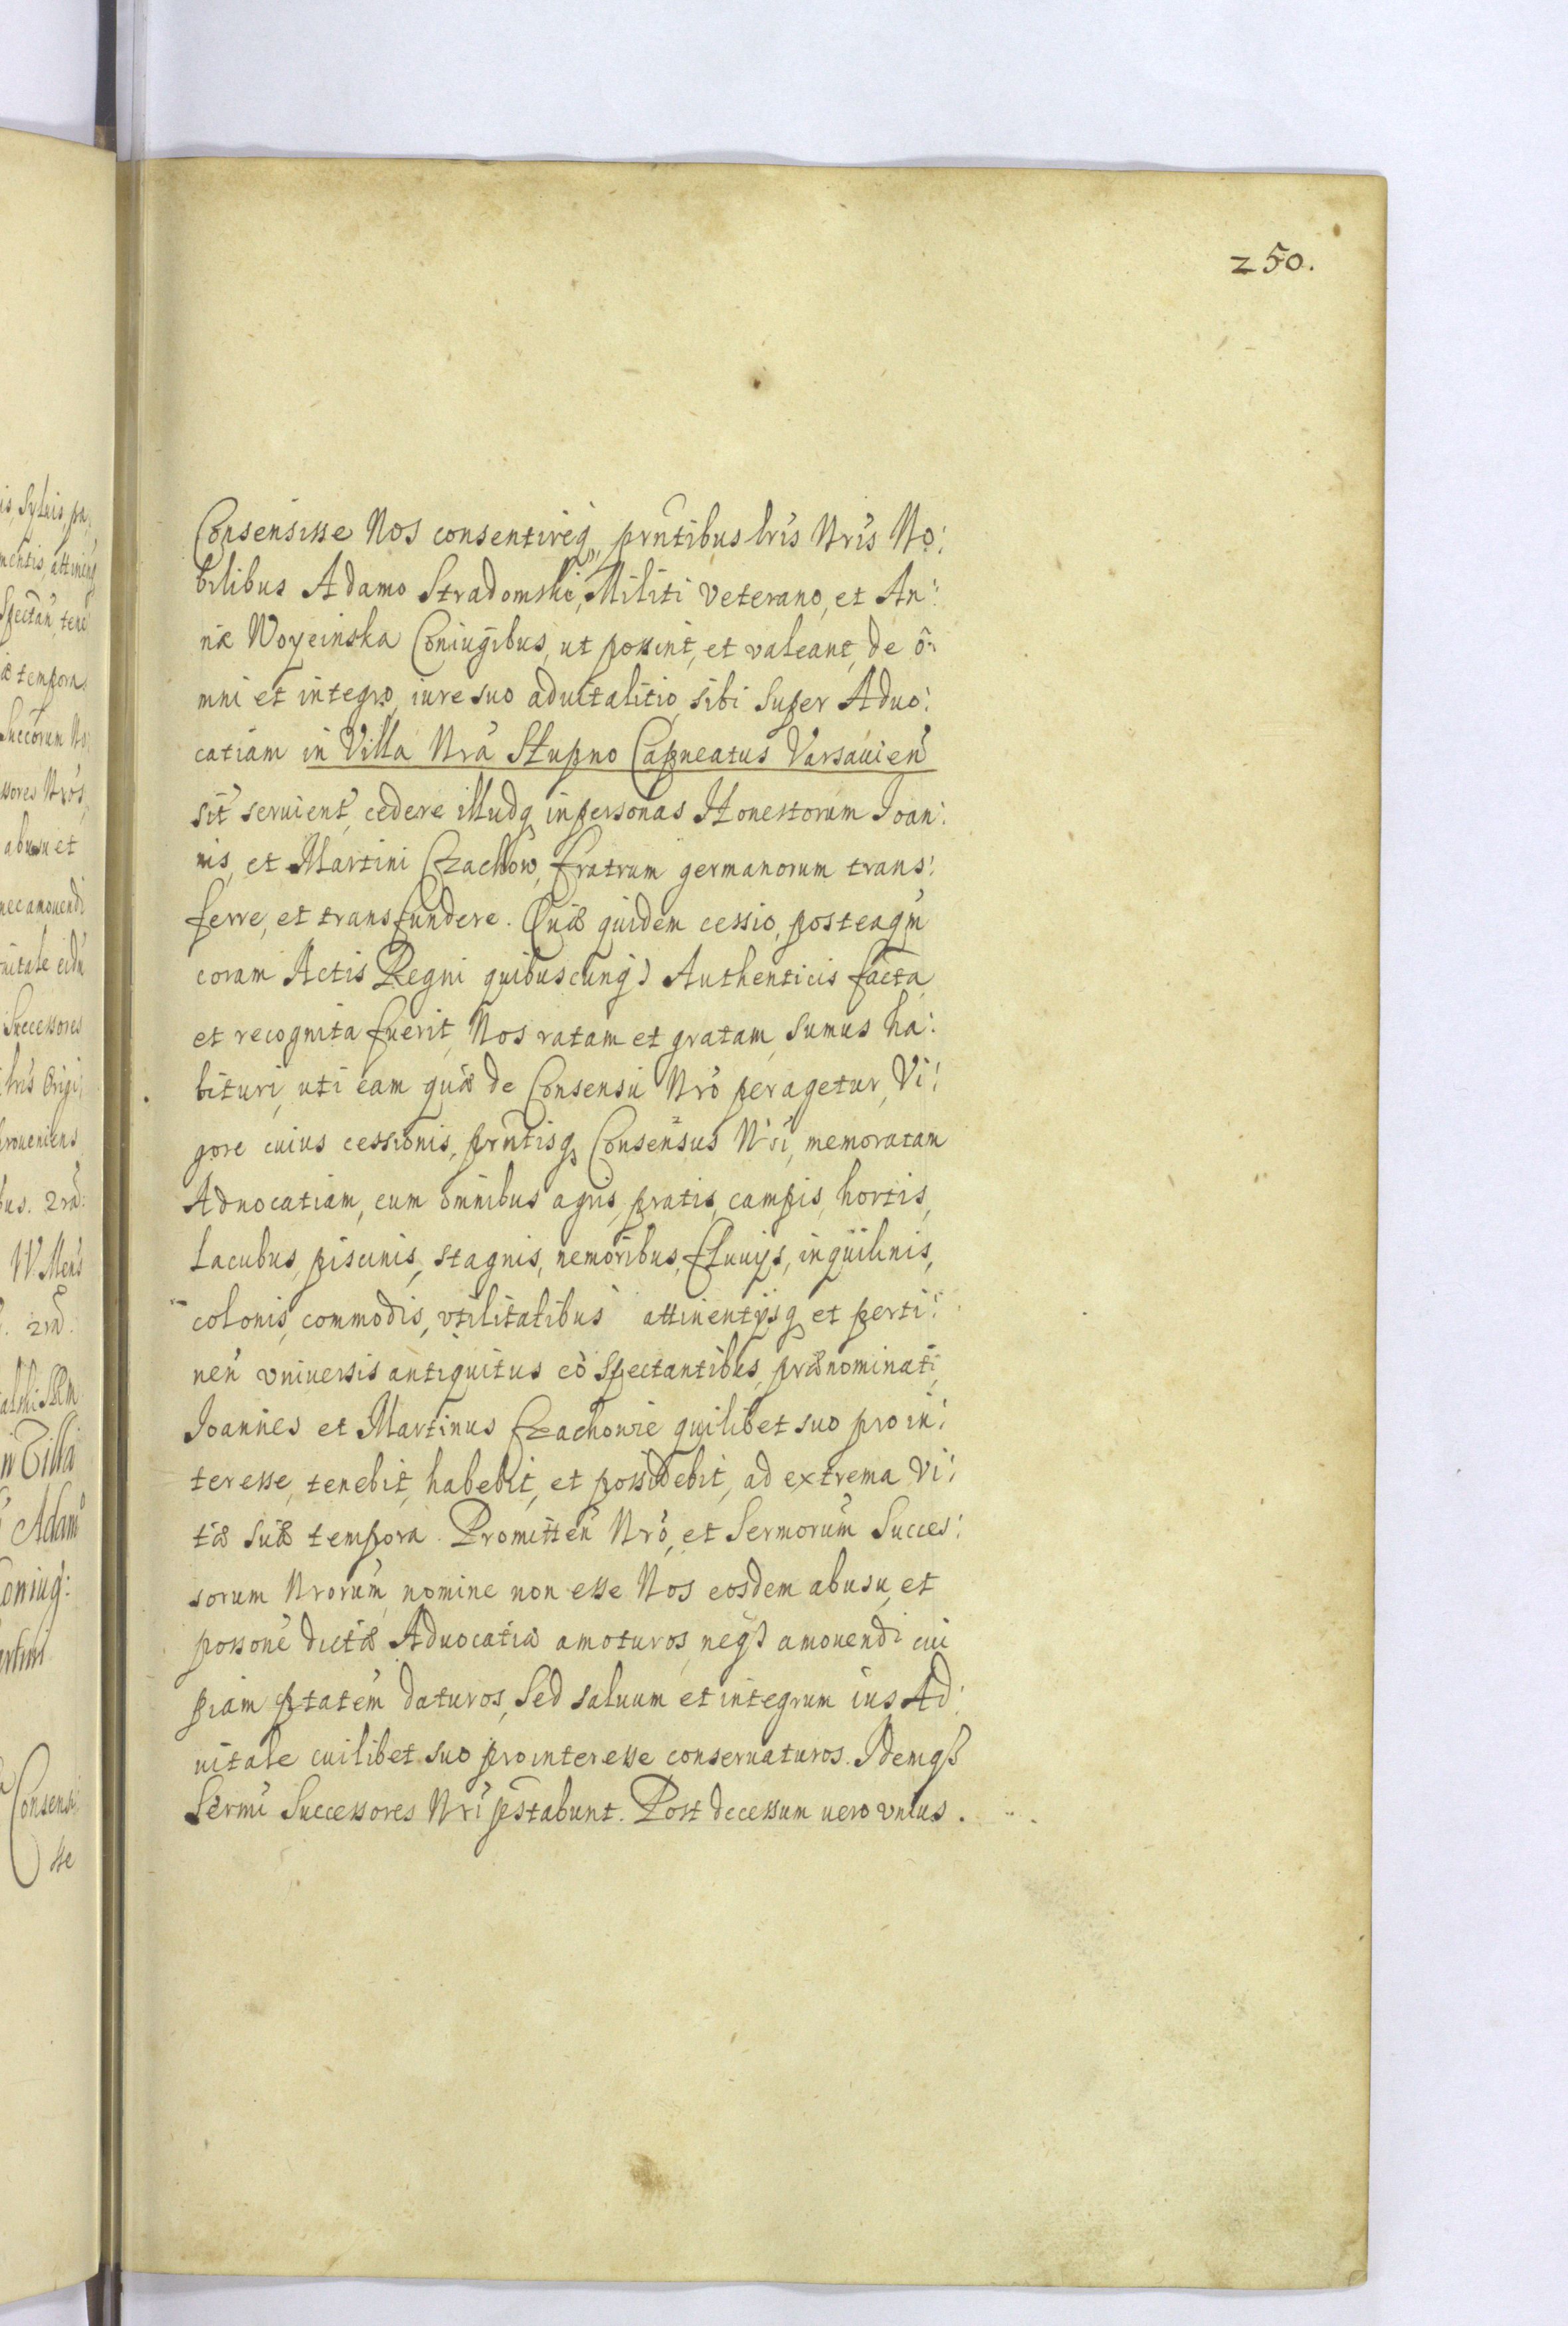 250.
Consensisse Nos consentireq, prntibus lris Nris No:
bilibus Adamo Stradomski, Militi veterano, et An:
næ Woyeinska Coniugibus, ut possint, et valeant, de o:
mni et integro, iure suo aduitalitio, sibi super Aduo:
catiam in Villa Nra Stupno Capneatus Varsauien
sit seruient, cedere illudq in personas Honestorum Joan:
nis, et Martini Czachow, fratrum germanorum trans:
ferre, et transfundere. Quæ quidem cessio, posteaqm
coram Actis Regni quibuscunq Authenticis facta
et recognita fuerit, Nos ratam et gratam, sumus ha:
bituri, uti eam quæ de Consensu Nro peragetur, Vi:
gore cuius cessionis, prntisq Consensus Nri, memoratam
Aduocatiam, cum omnibus agris, pratis, campis, hortis,
Lacubus, piscinis, stagnis, nemoribus, fluuijs, inquilinis,
colonis, commodis, vtilitatibus attinentijsq et perti:
nen vniuersis antiquitus eo spectantibus, prænominati,
Joannes et Martinus Czachowie quilibet suo pro in:
teresse, tenebit, habebit, et possidebit, ad extrema vi:
tæ suæ tempora. Promitten Nro, et Sermorum Succes:
sorum Nrorum, nomine non esse Nos eosdem abusu, et
possone dictæ Aduocatiæ amoturos, neq amouendi cui
piam ptatem daturos, Sed saluum et integrum ius Ad:
uitale cuilibet suo pro interesse conseruaturos. Idemq
Sermi Successores Nri pstabunt. Post decessum uero vnius.